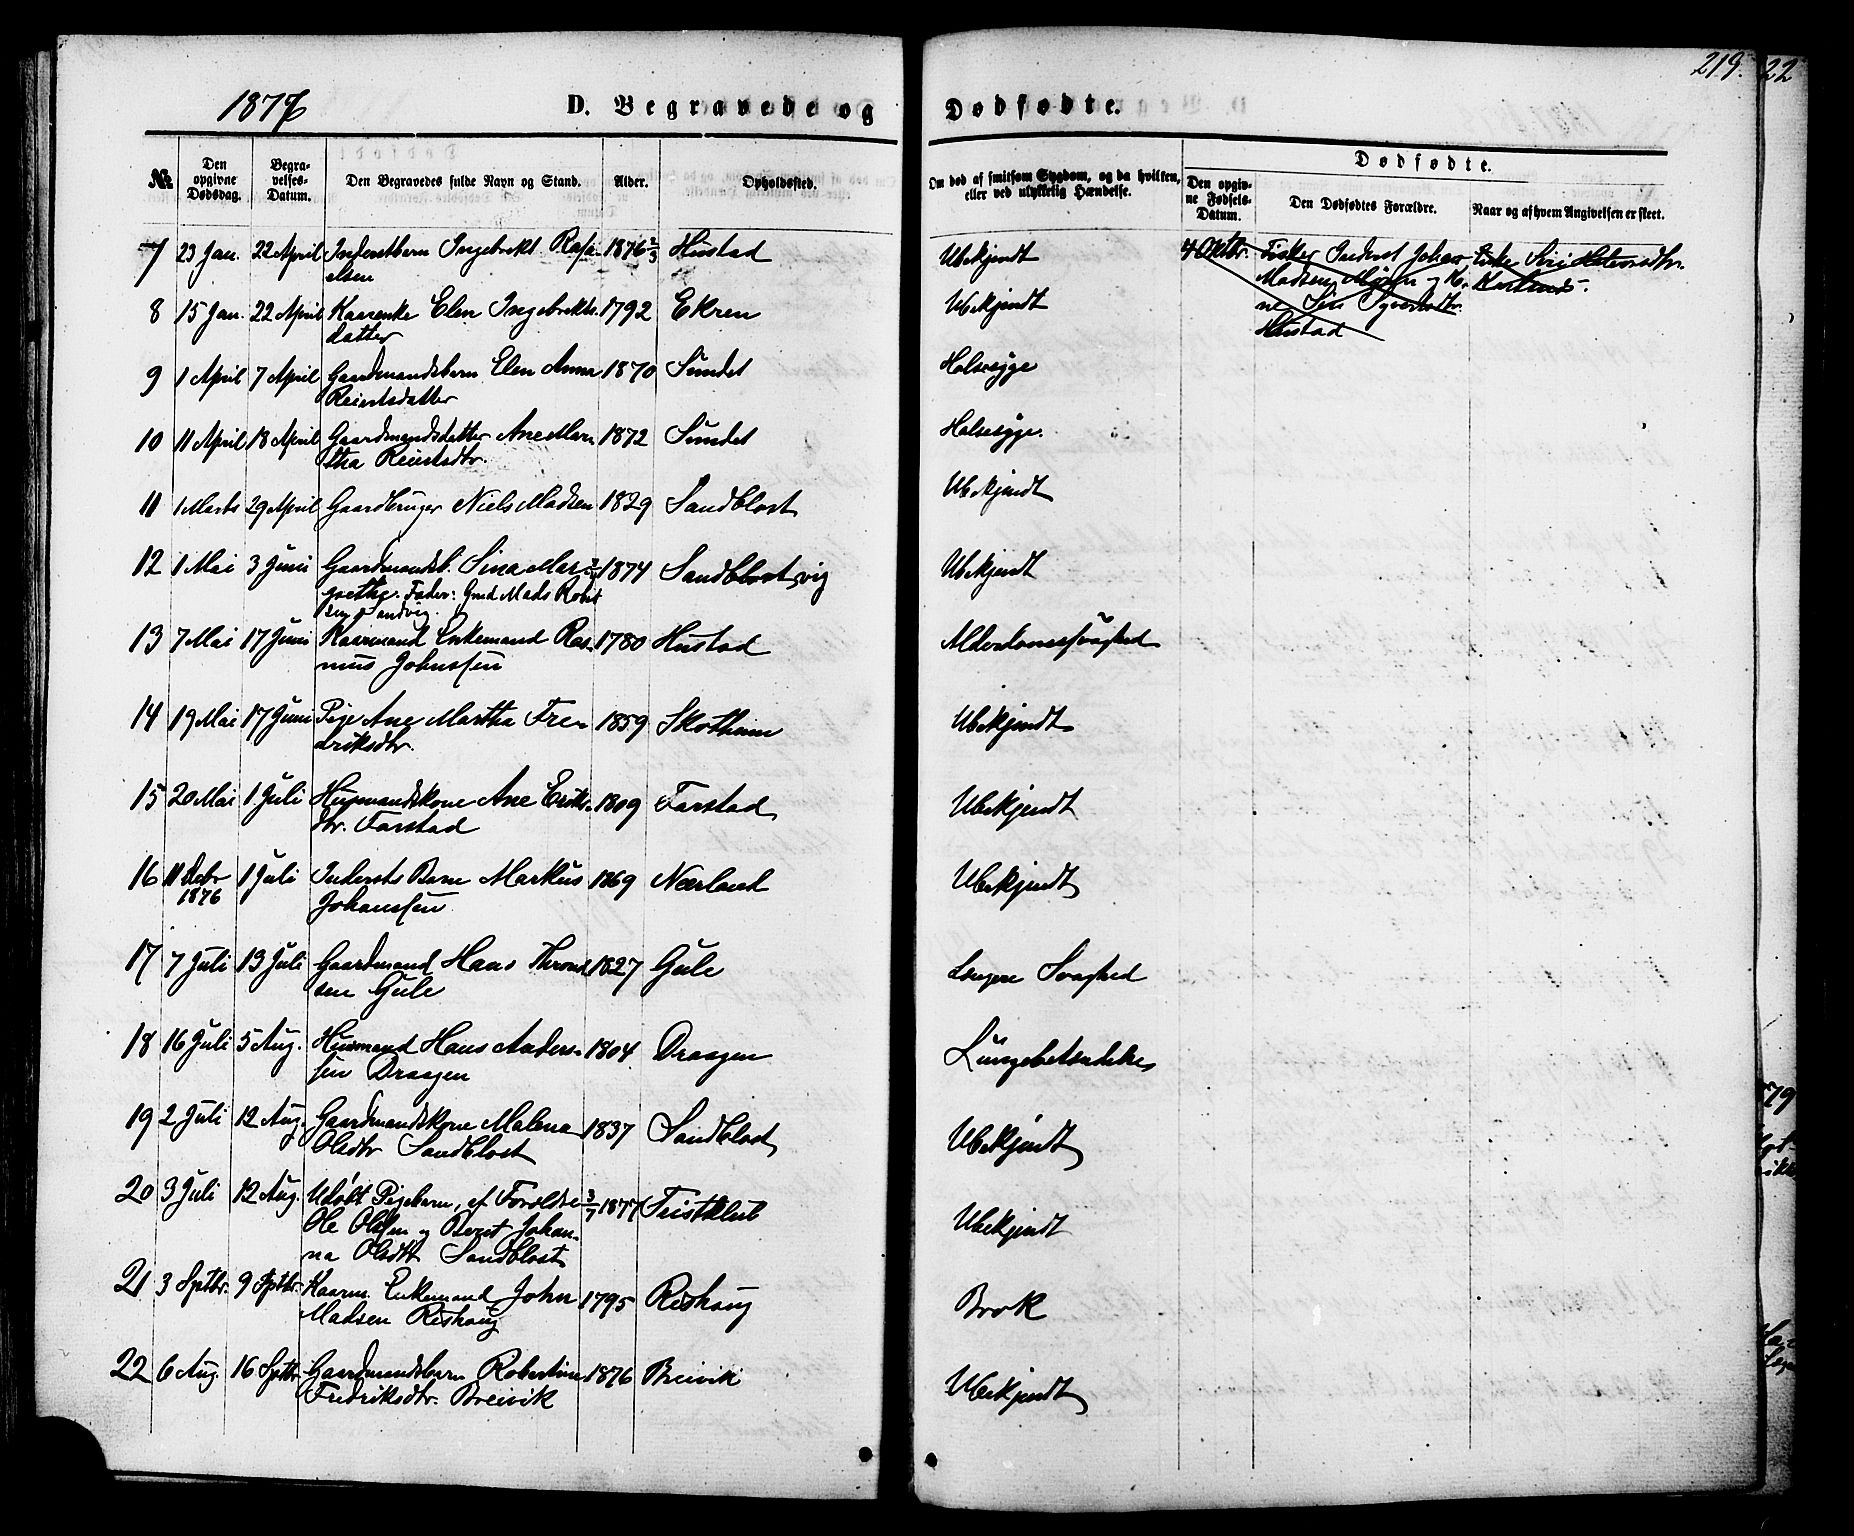 1877
D. Begravede og
Dødfødte.
219.
22
№
Den opgivne Dødsdag.
Begravelses-Datum.
Den Begravedes fulde Navn og Stand.
Alder.
Opholdssted.
Om død af smitsom Sygdom, og da hvilken, eller ved ulykkelig Hændelse.
Dødfødte.
Den opgivne Fødsels-Datum.
Den Dødfødtes Forældre.
Naar og af hvem Angivelsen er skeet.
7 23 Jan. 22 April Inderstbarn Ingebrikt Rafa- 1876 2/3 Hustad Ubekjendt
elsen
4 Oktbr. Fisker Inderst Johan Enke Siri
Madsen og K. 
ne Siri Syvertsdtr.
Hustad
8 15 Jan. 22 April Kaarenke Elen Ingebrikts- 1792 Ekren Ubekjendt
datter
9 1 April 7 April Gaardmandsbarn Elen Anna 1870 Sundet Halssyge
Reiertsdatter
10 11 April 18 April Gaardmandsdatter Ane Mar- 1872 Sundet Halssyge.
tha Reiertsdtr.
11 1 Marts 29 April Gaardbruger Niels Madsen 1829 Sandblost Ubekjendt
12 1 Mai 3 Juni Gaardmandsb. Sina Mar- 1874 Sandblostvig Ubekjendt
grethe. Fader: Gmd Mads Robt
sen Sandvig.
13 7 Mai 17 Juni Kaarmand Enkemand Ras- 1780 Hustad Alderdomssvaghed
mus Johnssen
14 19 Mai 17 Juni Pige Ane Martha Fre- 1859 Skotheim Ubekjendt
driksdtr.
15 20 Mai 1 Juli Husmandskone Ane Eriks- 1809 Farstad Ubekjendt
dtr. Farstad
16 11 Debr 1 Juli Indersts Barn Markus 1869 Nærland Ubekjendt
1876 Johanssen
17 7 Juli 13 Juli Gaardmand Hans Thrond- 1827 Gule Længere Svaghed
sen Gule
18 16 Juli 5 Aug. Husmand Hans Anders- 1804 Draagen Lungebetændelse
sen Draagen
19 2 Juli 12 Aug. Gaardmandskone Malena 1837 Sandblost Ubekjendt
Olsdtr Sandblost
20 3 Juli 12 Aug. Udøbt Pigebarn, af Forældre 3/7 1877 Tristklub Ubekjendt
Ole Olssen og Beret Johan-
na Olsdtr Sandblost
21 3 Sptbr. 9 Sptbr. Kaarm. Enkemand John 1795 Rishaug Brok
Madsen Rishaug
22 6 Aug. 16 Sptbr. Gaardmandsbarn Robertine 1876 Breivik Ubekjendt
Fredriksdtr. Breivik